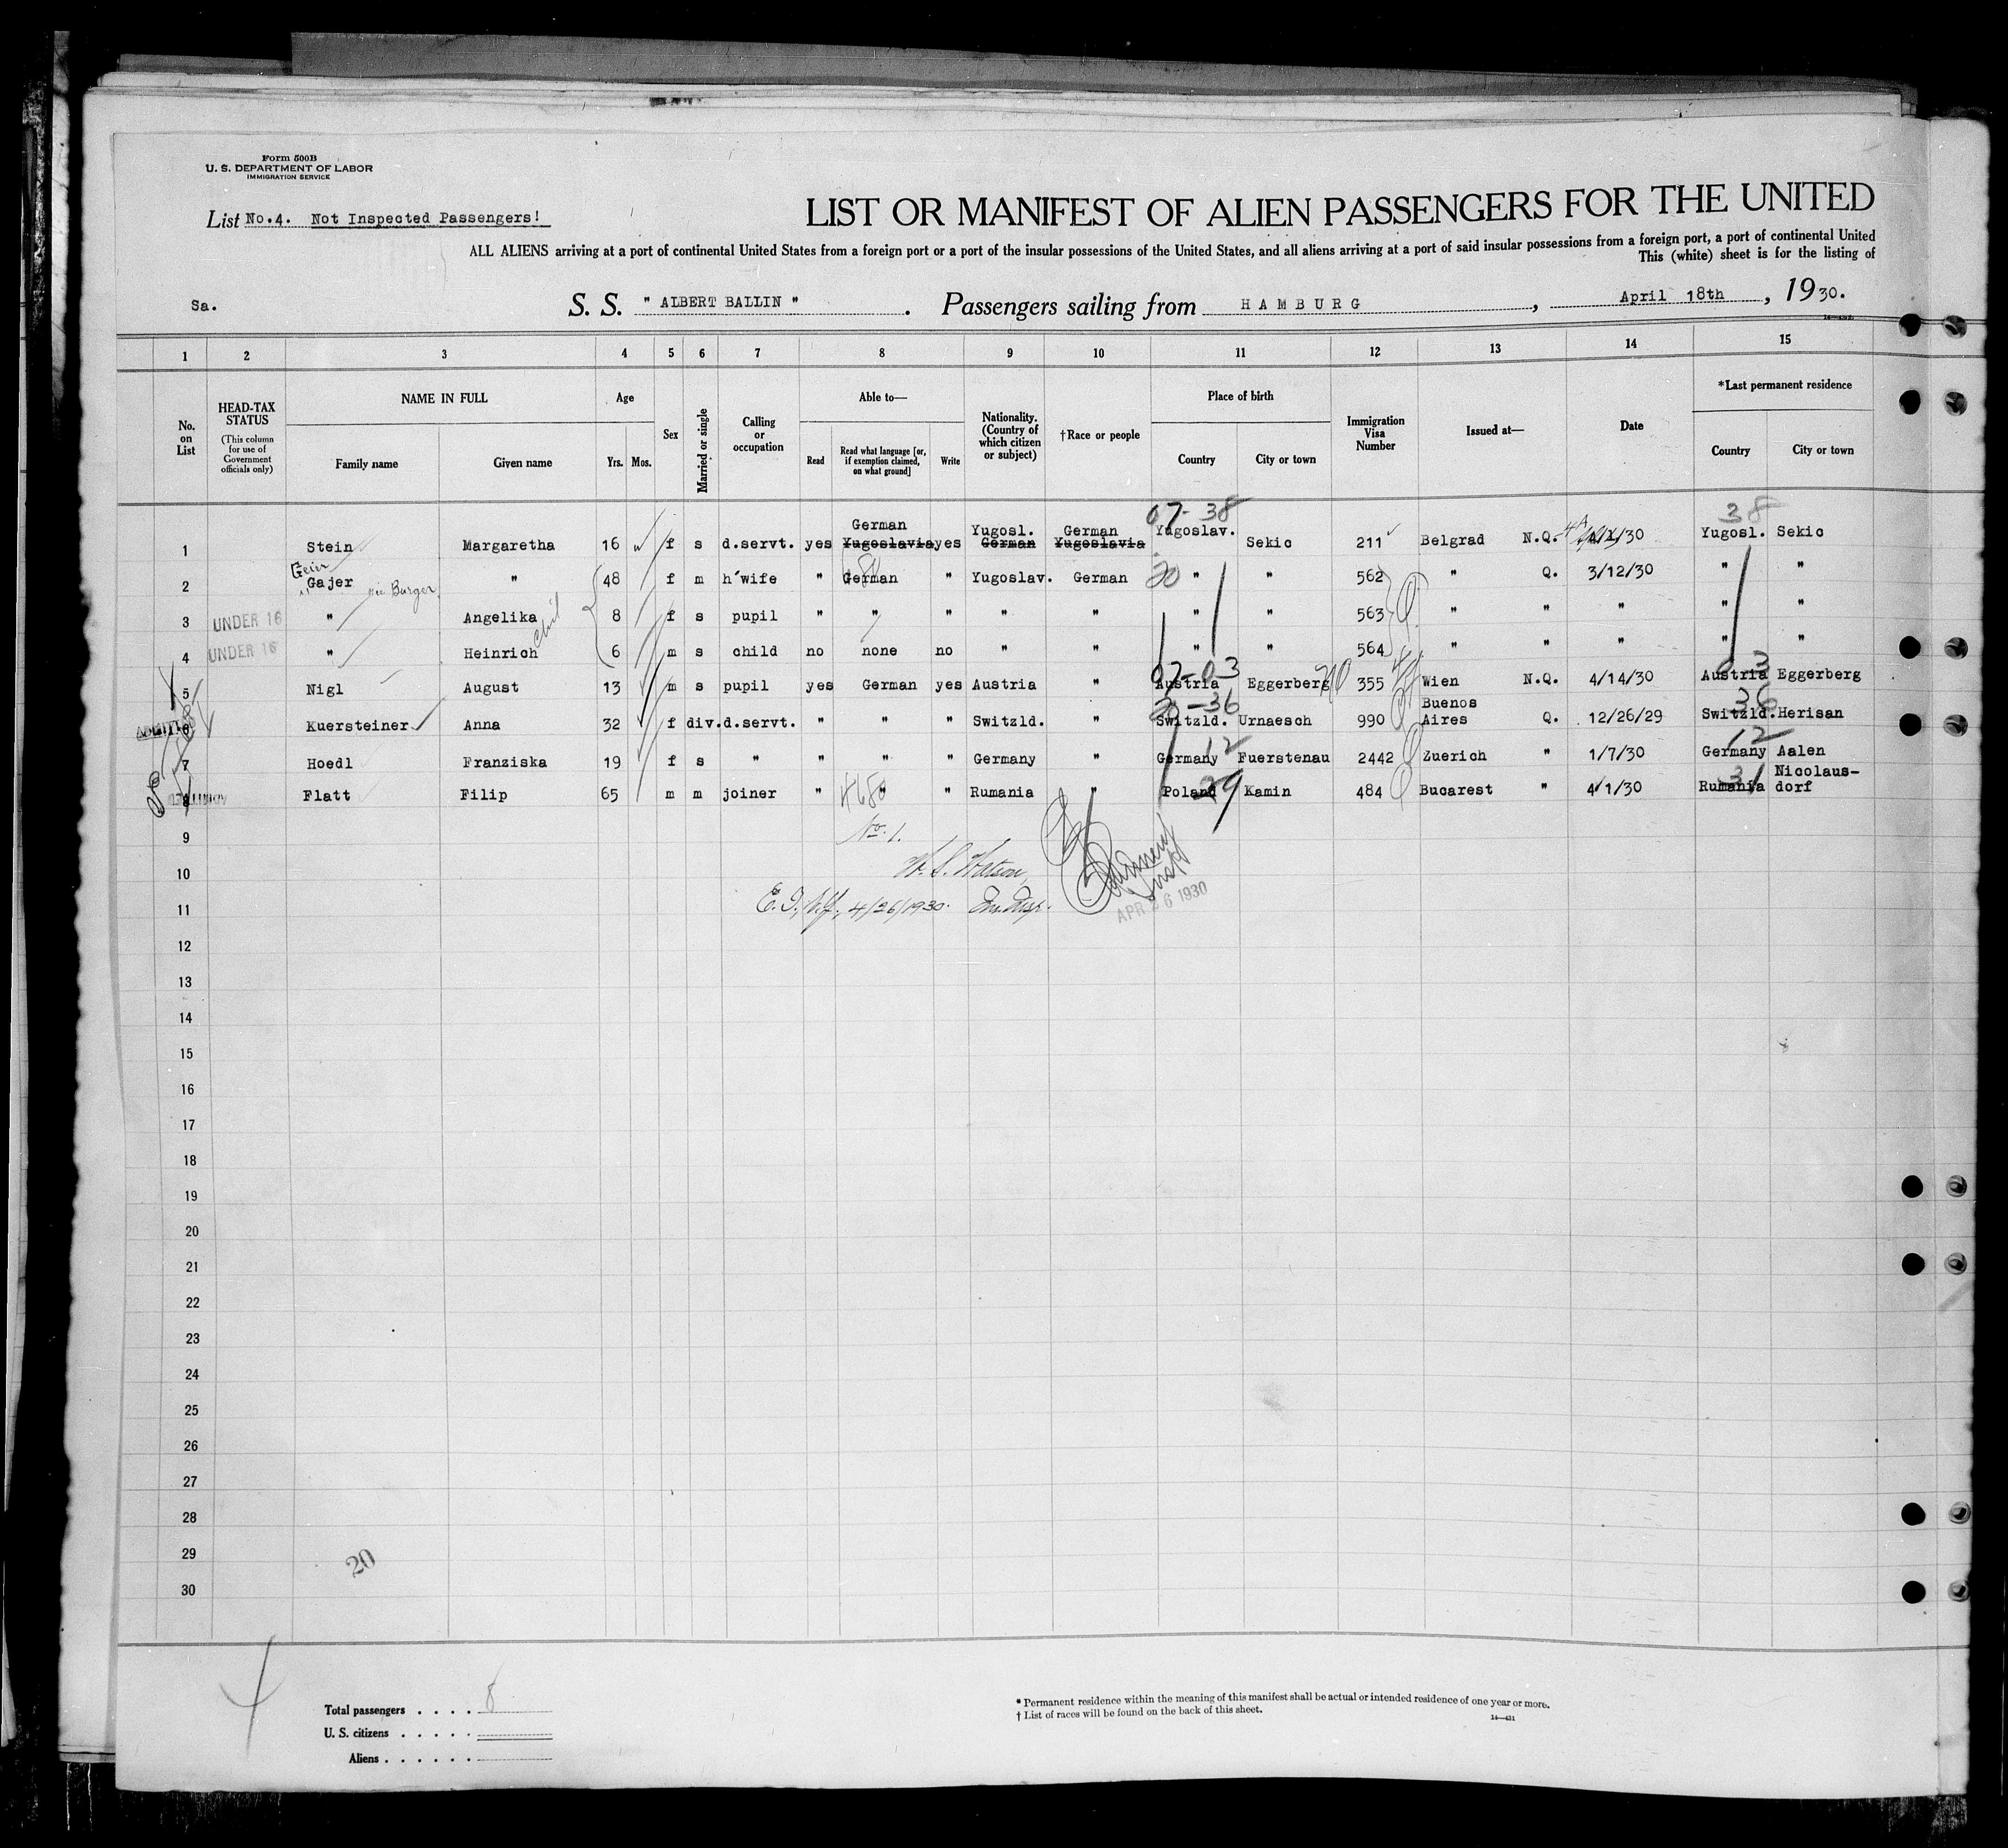 Form 500B
U. S. DEPARTMENT OF LABOR
IMMIGRATION SERVICE
List No.4. Not Inspected Passengers!
LIST OR MANIFEST OF ALIEN PASSENGERS FOR THE UNITED
ALL ALIENS arriving at a port of continental United States from a foreign port or a port of the insular possessions of the United States, and all aliens arriving at a port of said insular possessions from a foreign port, a port of continental United
This (white) sheet is for the listing of
Sa. S. S. " ALBERT BALLIN " . Passengers sailing from HAMBURG , April 18th , 1930.
1 2 3 4 5 6 7 8 9 10 11 12 13 14 15
No. on List
HEAD-TAX STATUS (This column for use of Government officials only)
NAME IN FULL
Family name Given name
Age
Yrs. Mos.
Sex
Married or single
Calling or occupation
Able to—
Read Read what language [or, if exemption claimed, on what ground] Write
Nationality. (Country of which citizen or subject)
†Race or people
Place of birth
Country City or town
Immigration Visa Number
Issued at—
Date
*Last permanent residence
Country City or town
07-38 38
1 Stein Margaretha 16 f s d.servt. yes German Yugoslavia yes Yugosl. German German Yugoslavia Yugoslav. Sekic 211 Belgrad N.Q. /30 Yugosl. Sekic
Geier
2 Gajer née Burger " 48 f m h'wife " German " Yugoslav. German 20 " " 562 " Q. 3/12/30 " "
3 UNDER 16 " Angelika 8 f s pupil " " " " " " " 563 " " " " "
4 UNDER 16 " Heinrich 6 m s child no none no " " " " 564 " " " " "
07-03 03
5 Nigl August 13 m s pupil yes German yes Austria " Austria Eggerberg 355 Wien N.Q. 4/14/30 Austria Eggerberg
20-36 36
6 Kuersteiner Anna 32 f div. d.servt. " " " Switzld. " Switzld. Urnaesch 990 Buenos Aires Q. 12/26/29 Switzld. Herisan
12 12
7 Hoedl Franziska 19 f s " " " " Germany " Germany Fuerstenau 2442 Zuerich " 1/7/30 Germany Aalen
29 31
8 Flatt Filip 65 m m joiner " " " Rumania " Poland Kamin 484 Bucarest " 4/1/30 Rumania Nicolaus-
dorf
9 No. 1.
10 W. S. Watson,
11 4/26/1930. Im. Insp. APR 26 1930
12
13
14
15
16
17
18
19
20
21
22
23
24
25
26
27
28
29
20
30
4
Total passengers . . . . 8
U. S. citizens . . . . .
Aliens . . . . . .
* Permanent residence within the meaning of this manifest shall be actual or intended residence of one year or more.
† List of races will be found on the back of this sheet.
14—431